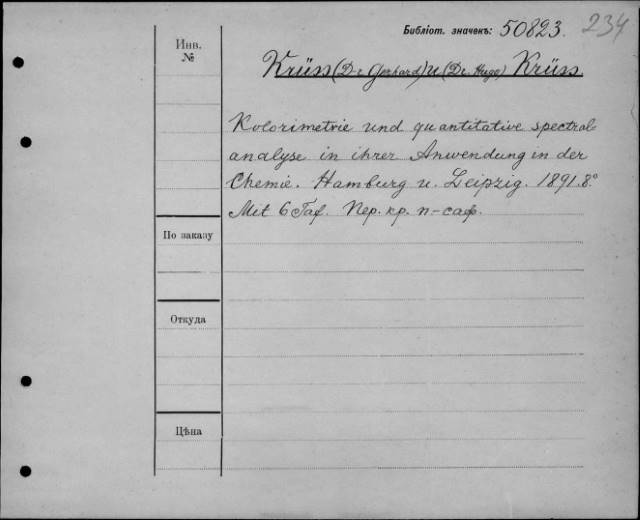 Библіот. значекъ: 50823. 234
Инв.
№
Krüss (Dr Gerhard) u (Dr. Hugo) Krüss.
Kolorimetrie und quantitative spectral-
analyse in ihrer Anwendung in der
Chemie. Hamburg u. Leipzig. 1891. 8°
Mit 6 Taf. Пер. кр. п-саф.
По заказу
Откуда
Цѣна